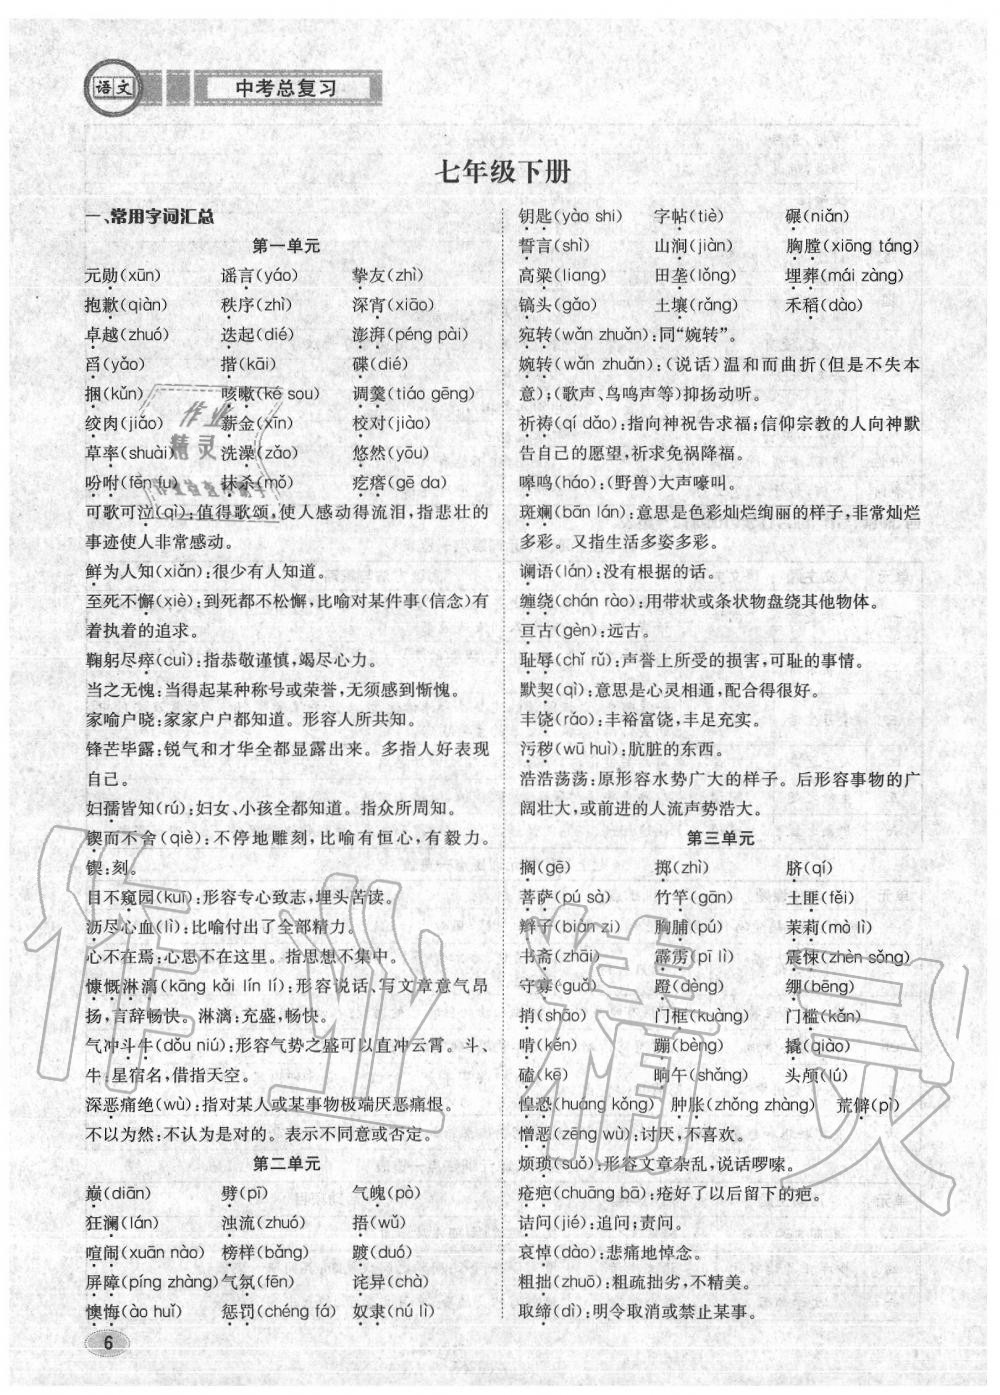 语文
中考总复习
七年级下册
一、常用字词汇总
第一单元
元勋(xūn) 谣言(yáo) 挚友(zhì)
抱歉(qiàn) 秩序(zhì) 深宵(xiāo)
卓越(zhuó) 迭起(dié) 澎湃(péng pài)
舀(yǎo) 揩(kāi) 碟(dié)
捆(kǔn) 咳嗽(ké sou) 调羹(tiáo gēng)
绞肉(jiǎo) 薪金(xīn) 校对(jiào)
草率(shuài) 洗澡(zǎo) 悠然(yōu)
吩咐(fēn fu) 抹杀(mǒ) 疙瘩(gē da)
可歌可泣(qì):值得歌颂,使人感动得流泪,指悲壮的
事迹使人非常感动。
鲜为人知(xiǎn):很少有人知道。
至死不懈(xiè):到死都不松懈,比喻对某件事(信念)有
着执着的追求。
鞠躬尽瘁(cuì):指恭敬谨慎,竭尽心力。
当之无愧:当得起某种称号或荣誉,无须感到惭愧。
家喻户晓:家家户户都知道。形容人所共知。
锋芒毕露:锐气和才华全都显露出来。多指人好表现
自己。
妇孺皆知(rú):妇女、小孩全都知道。指众所周知。
锲而不舍(qiè):不停地雕刻,比喻有恒心,有毅力。
锲:刻。
目不窥园(kuī):形容专心致志,埋头苦读。
沥尽心血(lì):比喻付出了全部精力。
心不在焉:心思不在这里。指思想不集中。
慷慨淋漓(kāng kǎi lín lí):形容说话、写文章意气昂
扬,言辞畅快。淋漓:充盛,畅快。
气冲斗牛(dǒu niú):形容气势之盛可以直冲云霄。斗、
牛:星宿名,借指天空。
深恶痛绝(wù):指对某人或某事物极端厌恶痛恨。
不以为然:不认为是对的。表示不同意或否定。
第二单元
巅(diān) 劈(pī) 气魄(pò)
狂澜(lán) 浊流(zhuó) 捂(wǔ)
喧闹(xuān nào) 榜样(bǎng) 踱(duó)
屏障(píng zhàng) 气氛(fēn) 诧异(chà)
懊悔(ào huǐ) 惩罚(chéng fá) 奴隶(nú lì)
钥匙(yào shi) 字帖(tiè) 碾(niǎn)
誓言(shì) 山涧(jiàn) 胸膛(xiōng táng)
高粱(liang) 田垄(lǒng) 埋葬(mái zàng)
镐头(gǎo) 土壤(rǎng) 禾稻(dào)
宛转(wǎn zhuǎn):同“婉转”。
婉转(wǎn zhuǎn):(说话)温和而曲折(但是不失本
意);(歌声、鸟鸣声等)抑扬动听。
祈祷(qí dǎo):指向神祝告求福;信仰宗教的人向神默
告自己的愿望,祈求免祸降福。
嗥鸣(háo):(野兽)大声嚎叫。
斑斓(bān lán):意思是色彩灿烂绚丽的样子,非常灿烂
多彩。又指生活多姿多彩。
谰语(lán):没有根据的话。
缠绕(chán rào):用带状或条状物盘绕其他物体。
亘古(gèn):远古。
耻辱(chǐ rǔ):声誉上所受的损害,可耻的事情。
默契(qì):意思是心灵相通,配合得很好。
丰饶(rǎo):丰裕富饶,丰足充实。
污秽(wū huì):肮脏的东西。
浩浩荡荡:原形容水势广大的样子。后形容事物的广
阔壮大,或前进的人流声势浩大。
第三单元
搁(gē) 掷(zhì) 脐(qí)
菩萨(pú sà) 竹竿(gān) 土匪(fěi)
辫子(biàn zi) 胸脯(pú) 茉莉(mò lì)
书斋(zhāi) 霹雳(pī lì) 震悚(zhèn sǒng)
守寡(guǎ) 蹬(dèng) 绷(bēng)
捎(shāo) 门框(kuàng) 门槛(kǎn)
啃(kěn) 蹦(bèng) 撬(qiào)
磕(kē) 晌午(shǎng) 头颅(lú)
惶恐(huáng kǒng) 肿胀(zhǒng zhàng) 荒僻(pì)
憎恶(zēng wù):讨厌,不喜欢。
烦琐(suǒ):形容文章杂乱,说话啰嗦。
疮疤(chuāng bā):疮好了以后留下的疤。
诘问(jié):追问;责问。
哀悼(dào):悲痛地悼念。
粗拙(zhuō):粗疏拙劣,不精美。
取缔(dì):明令取消或禁止某事。
6
作业精灵